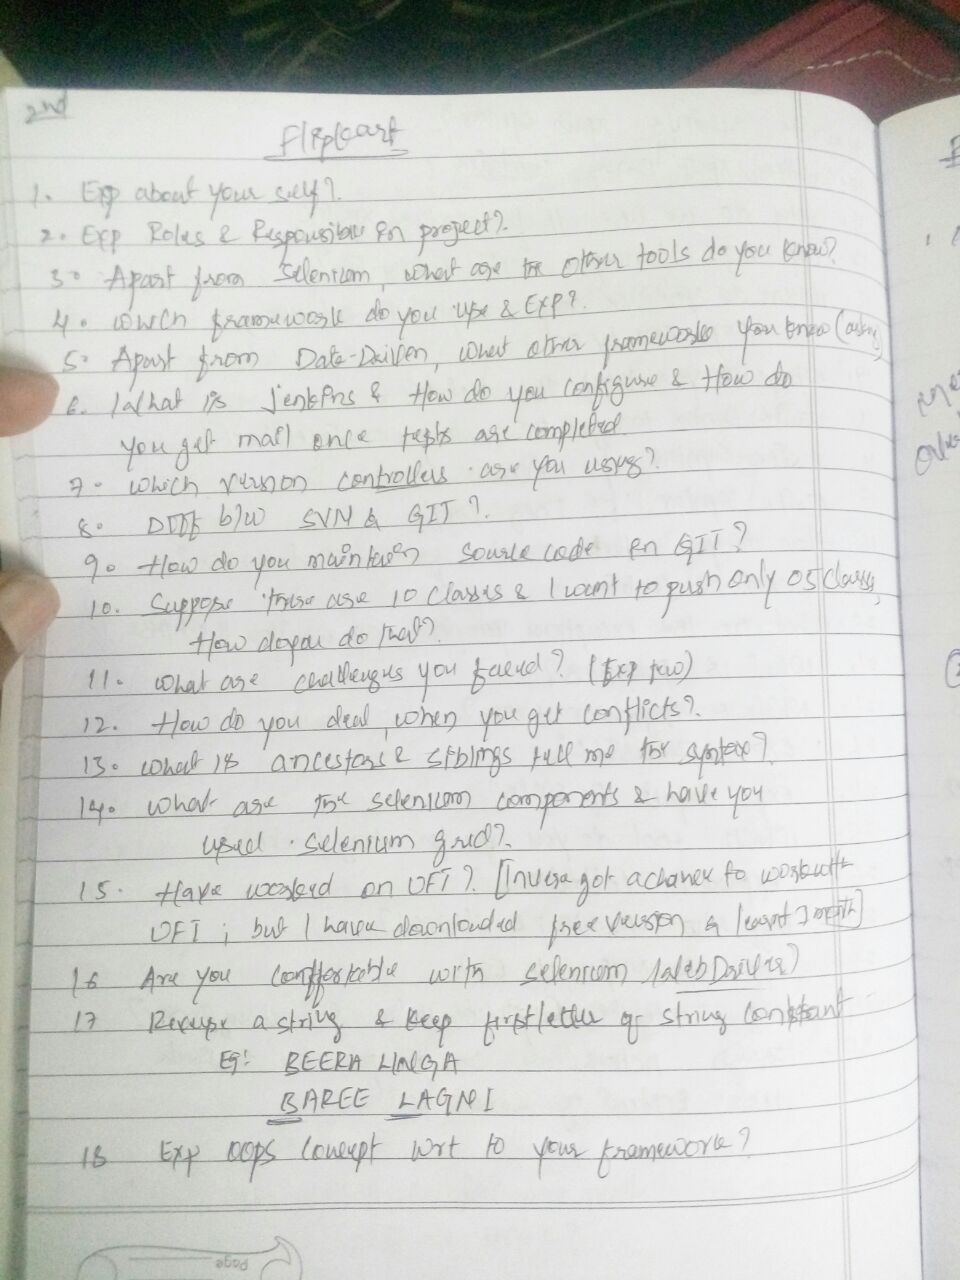 2nd
Flipkart
1. Exp about your self?.
2. Exp Roles & Responsible in project?.
3. Apart from Selenium, what are the other tools do you know?
4. Which framework do you use & Exp?.
5. Apart from Data-Driven, what other frameworks you know
6. What is Jenkins & How do you configure & How do
you get mail once tests are completed
7. Which version controllers are you using?.
8. Diff b/w SVN & GIT?.
9. How do you maintain source code in GIT?
10. Suppose there are 10 classes & I want to push only 05 classes,
How do you do that?.
11. What are challenges you faced? (Exp few)
12. How do you deal, when you get conflicts?.
13. What is ancestors & siblings tell me the syntax?
14. What are the selenium components & have you
used selenium grid?.
15. Have worked on UFT?. [I never got a chance to work with
UFT; but I have downloaded free version & learnt 1 month]
16 Are you comfortable with selenium WebDriver?
17 Reverse a string & keep first letter of string constant
Eg: BEERA LINGA
BAREE LAGNI
18 Exp oops concept wrt to your framework?
Page